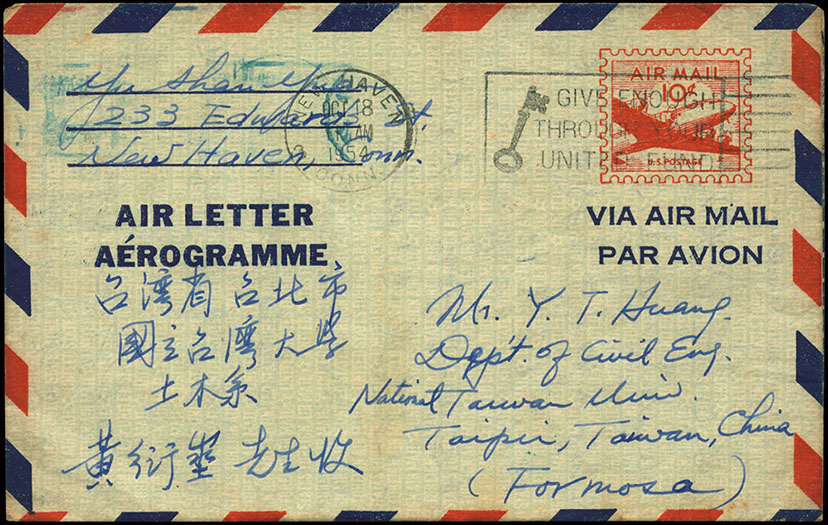 Yu Shan
233 Edwards St.
New Haven, Conn.
NEW HAVEN
OCT 18
AM
1954
CONN.
GIVE ENOUGH
THROUGH YOUR
UNITED FUND
AIR MAIL
10¢
U.S. POSTAGE
AIR LETTER
AÉROGRAMME
VIA AIR MAIL
PAR AVION
台湾省台北市
國立台湾大学
土木系
黃衍 先生收
Mr. Y. T. Huang.
Dep't. of Civil Eng.
National Taiwan Univ.
Taipei, Taiwan, China
(Formosa)